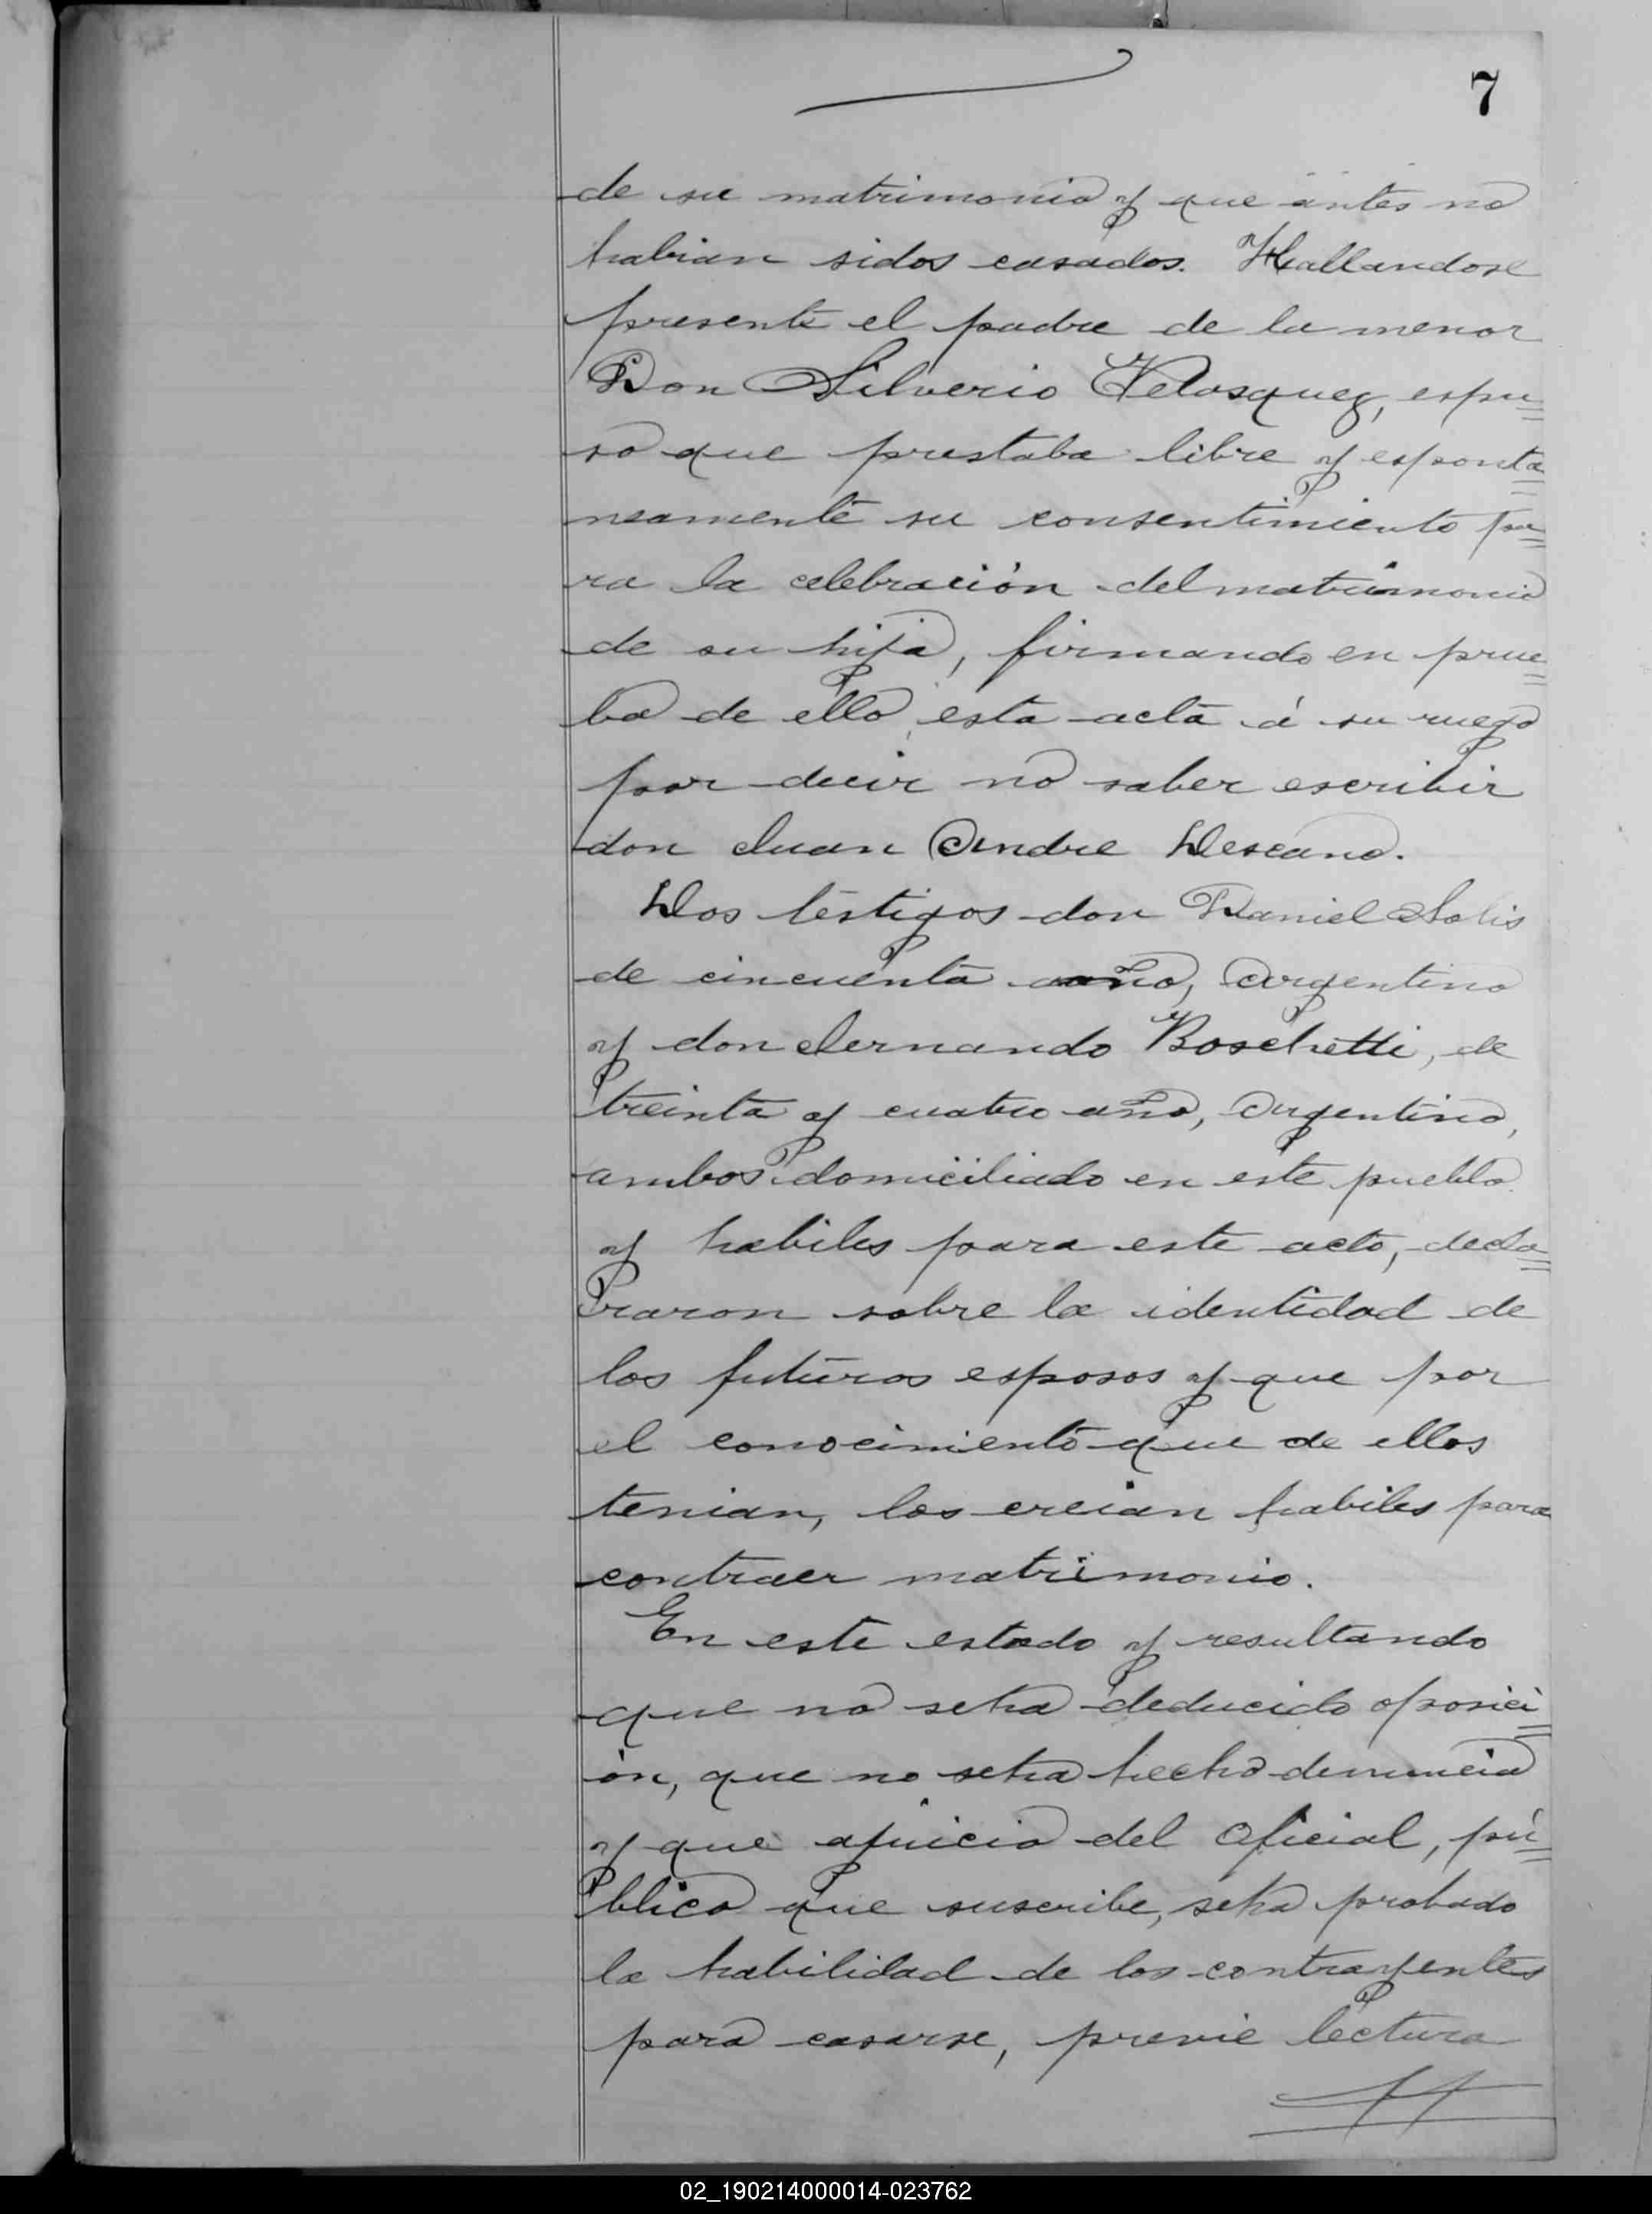 7
de su matrimonio y que antes no
habian sidos casados. Hallandose
presente el padre de la menor
Don Silverio Velasquez, espu=
so que prestaba libre y esponta=
neamente su consentimiento pa=
ra la celebración del matrimonio
de su hija, firmando en prue=
ba de ello, esta acta á su ruego
por decir no saber escribir
don Juan Andre
Los testigos don Daniel Solis
de cincuenta año, argentino
y don Fernando Boschetti, de
treinta y cuatro año, argentino,
ambos domiciliado en este pueblo
y habiles para este acto, decla=
raron sobre la identidad de
los futuros esposos y que por
el conocimiento que de ellos
tenian, los creian habiles para
contraer matrimonio.
En este estado y resultando
que no seha deducido oposici=
ón, que no seha hecho denuncia
y que ajuicio del Oficial, pú=
blico que suscribe, seha probado
la habilidad de los contrayentes
para casarse, previe lectura
02_190214000014-023762